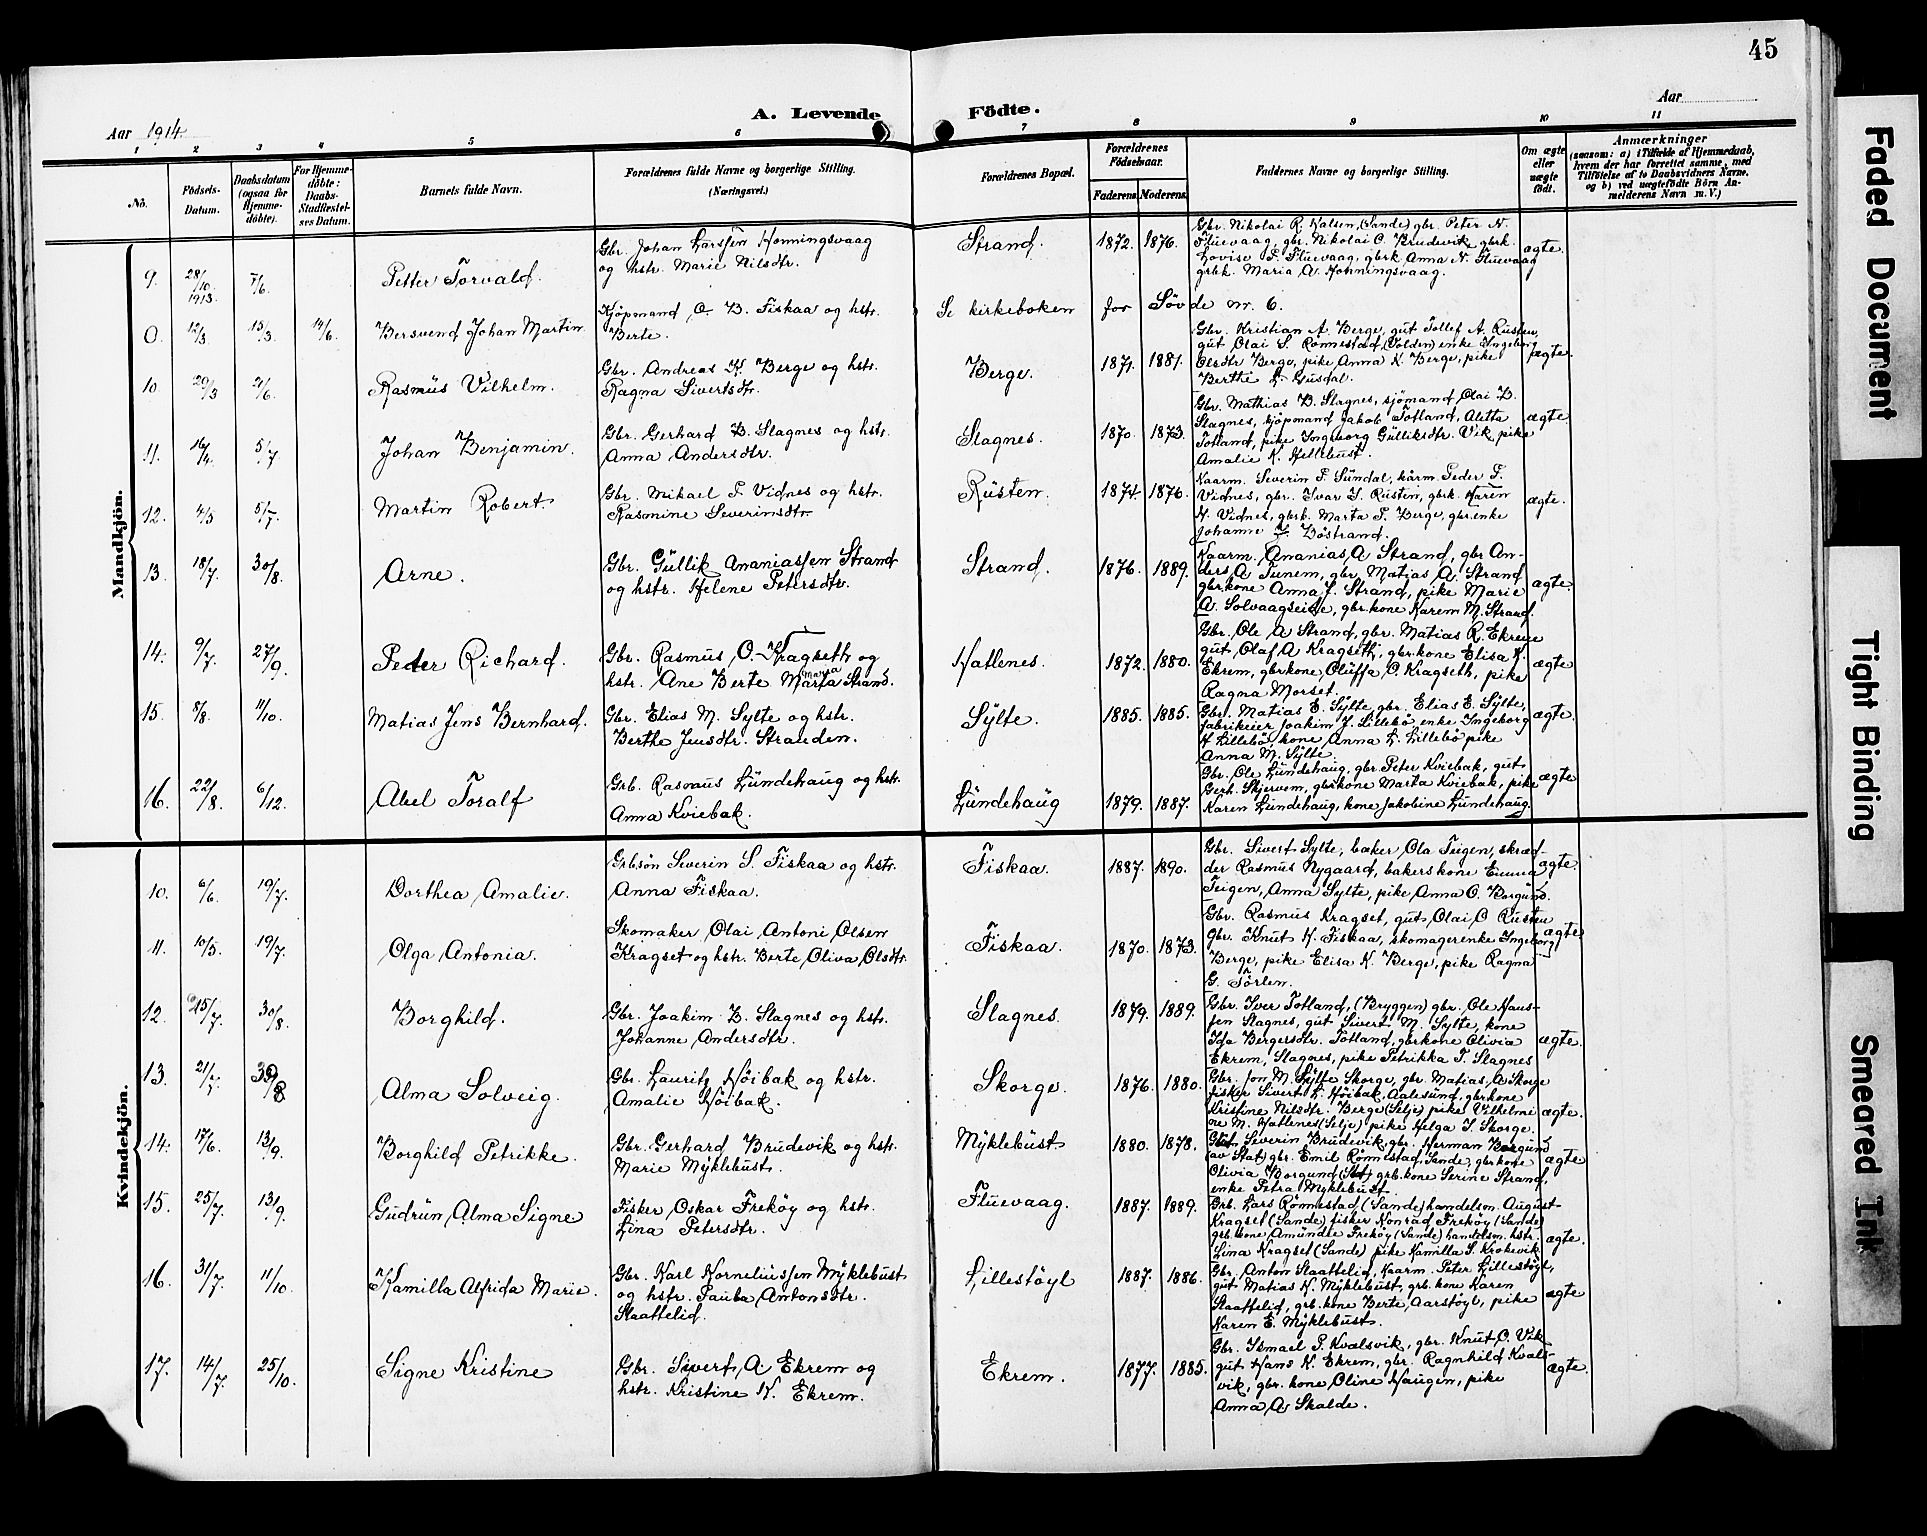 45
Aar 1914.
A. Levende Födte.
Aar
1 2 3 4 5 6 7 8 9 10 11
No.
Födsels-Datum.
Daabsdatum (ogsaa for Hjemme-döbte).
For Hjemme-döbte: Daabs-Stadfæstel-ses Datum.
Barnets fulde Navn.
Forældrenes fulde Navne og borgerlige Stilling. (Næringsvei.)
Forældrenes Bopæl.
Forældrenes Födselsaar.
Faderens. Moderens.
Faddernes Navne og borgerlige Stilling.
Om ægte eller uægte födt.
Anmærkninger
(saasom: a) i Tilfælde af Hjemmedaab, hvem der har forrettet samme, med Tilföielse af to Daabsvidners Navne, og b) ved uægtefödte Börn An-melderens Navn m. V.)
Mandkjön.
9. 28/10 1913. 7/6. Petter Torvald.
Gbr. Johan Larssen Honningsvaag
og hstr. Marie Nilsdtr.
Strand. 1872. 1876.
Gbr. Nikolai R. Kalsen, (Sande) gbr. Peter N.
Fluevaag, gbr. Nikolai O. Brudevik, gbrk.
Lovise P. Fluevaag, gbrk Anna N. Fluevaag
grbk. Maria A. Honningsvaag.
ægte.
0. 12/3. 13/3 14/6. Bersvend Johan Martin.
Kjøpmand O. B. Fiskaa og hstr.
Berte.
Se kirkeboken for Søvde nr. 6.
10. 20/3 21/6. Rasmus Vilhelm.
Gbr. Andreas K. Berge og hstr.
Ragna Sivertsdtr.
Berge. 1871. 1881.
Gbr. Kristian A. Berge, gut Tollef A. Rusten,
gut Olai S. Rønnestad, (Volden) enke Ingeborg
Olsdtr Berge, pike Anna K. Berge, pike
Berthe L. Gusdal.
ægte.
11. 16/4. 5/7 Johan Benjamin.
Gbr. Gerhard B. Slagnes og hstr.
Anna Andersdtr.
Slagnes. 1870. 1873.
Gbr. Mathias B. Slagnes, sjömand Olai B.
Slagnes, kjöpmand Jakob Totland, Aletta
Totland, pike Ingeborg Gulliksdtr. Vik, pike
Amalie K. Hellebust.
ægte.
12. 4/5 5/7. Martin Robert.
Gbr. Mikael P. Vidnes og hstr.
Rasmine Severinsdtr
Rusten. 1874. 1876.
Kaarm. Severin P. Sundal, kårm. Peder P.
Vidnes, gbr. Ivar S. Rusten, gbrk. Karen
N. Vidnes, gbrk. Marta P. Berge, gbr.enke
Johanne J. Böstrand.
ægte.
13. 18/7. 30/8. Arne.
Gbr. Gullik Ananiassen Strand
og hstr. Helene Petersdtr.
Strand. 1876. 1889.
Kaarm. Ananias A Strand, gbr An-
ders A Tunem, gbr. Matias A. Strand
gbr.kone Anna J. Strand, pike Marie
A. Solvaagseide, gbr.kone Karen M. Strand.
ægte.
14. 9/7. 27/9. Peder Richard.
Gbr. Rasmus O. Kragseth og
hstr. Ane Berte Marta Strand.
Hatlenes. 1872. 1880.
Gbr. Ole A Strand, gbr. Matias R. Ekrem
gut Olaf A Kragseth, gbr.kone Elisa K.
Ekrem, gbr.kone Oluffa O. Kragseth, pike
Ragna Morset.
ægte
15. 8/8. 11/10. Matias Jens Bernhard.
Gbr. Elias M. Sylte og hstr.
Berthe Jensdtr. Stranden.
Sylte. 1885. 1885.
Gbr. Matias E. Sylte, gbr. Elias E. Sylte,
fabrikeier Joakim J. Lillebö, enke Ingeborg
H Lillebö, kone Anna L. Lillebö pike
Anna M. Sylte.
ægte.
16. 22/8. 6/12. Abel Toralf
Grb. Rasmus Lundehaug og hstr.
Anna Kviebak.
Lundehaug 1879. 1887.
Gbr. Ole Lundehaug, gbr. Peter Kviebak, gut
Gerh. Skjervem, gbrkone Marta Kviebak, pike
Karen Lundehaug, kone Jakobine Lundehaug.
ægte
Kvindekjön.
10. 6/6. 19/7. Dorthea Amalie.
Grbsön Severin S. Fiskaa og hstr.
Anna Fiskaa.
Fiskaa. 1887. 1890.
Gbr. Sivert Sylte, bæker Ola Teigen, skræd-
der Rasmus Nygaard, bakerskone Emma
Teigen, Anna Sylte, pike Anna O. Borgund.
ægte.
11. 10/5. 19/7. Olga Antonia.
Skomaker Olai Antoni Olsen
Kragset og hstr. Berte Oliva Olsdtr.
Fiskaa. 1870. 1873.
Gbr. Rasmus Kragset, gut Olai O Rusten
gbr. Knut K. Fiskaa, skomagerenke Ingeborg
Berge, pike Elisa K. Berge, pike Ragna
G. Tørlen.
ægte
12. 15/7. 30/8. Borghild.
Gbr. Joakim B. Slagnes og hstr.
Johanne Andersdtr.
Slagnes. 1879. 1889.
Gbr. Iver Totland, (Bryggen) gbr. Ole Hans-
sen Slagnes, gut Sivert M. Sylte, kone
Ida Bergersdtr. Totland, gbrkone Olivia
Ekrem, Slagnes, pike Petrikka T. Slagnes
ægte.
13. 21/7. 30/8 Alma Solveig.
Gbr. Lauritz Höibak og hstr.
Amalie Höibak.
Skorge. 1876. 1880.
Gbr. Jon M. Sylte Skorge, gbr. Matias A Skorge
fisker Sivert L. Höibak, Aalesund, gbr.kone
Kristine Nilsdtr. Berge (Selje) pike Vilhelmi
ne M. Hatlenes (Selje) pike Helga I. Skorge.
ægte.
14. 17/6. 13/9. Borghild Petrikke.
Gbr. Gerhard Brudevik og hstr.
Marie Myklebust.
Myklebust 1880. 1878.
Gut Severin Brudevik, gbr. Herman Borgund
(av Stat) gbr. Emil Rønnestad (Sande), gbr.kone
Olivia Borgund (Stat) grb.kone Serine Strand,
enke Petra Myklebust.
ægte
15. 25/7. 13/9. Gudrun Alma Signe
Fisker Oskar Frekøy og hstr.
Lina Petersdtr.
Fluevaag. 1887. 1889.
Grb. Lars Rønnestad (Sande) handelsm. August
Kragset (Sande) fisker Konrad Frekøy (Sande)
grb.kone Amundte Frekøy (Sande) handelsm. hstr.
Lina Kragset (Sande) pike Kamilla S. Krokevik
ægte.
16. 31/7. 11/10. Kamilla Alfrida Marie.
Gbr. Karl Korneliussen Myklebust
og hstr. Pauba Antonsdtr.
Slaattelid.
Lillestöyl 1887. 1886.
Gbr. Anton Slaattelid, Kaarm. Peter Lillestöyl,
gut Matias K. Myklebust, grb.kone Karen
Slaattelid, grb.kone Berte Aarstöyl, pike
Karen E. Myklebust.
ægte
17. 14/7 25/10. Signe Kristine
Gbr. Sivert A. Ekrem og
hstr. Kristine K. Ekrem.
Ekrem. 1877. 1885.
Gbr. Ismael P. Kvalsvik, gbr. Knut O. Vik
gut Hans K. Ekrem, gbr. Ragnhild Kvals-
vik, gbr. kone Oline Haugen, pike
Anna A. Skalde.
ægte.
Faded Document
Tight Binding
Smeared Ink